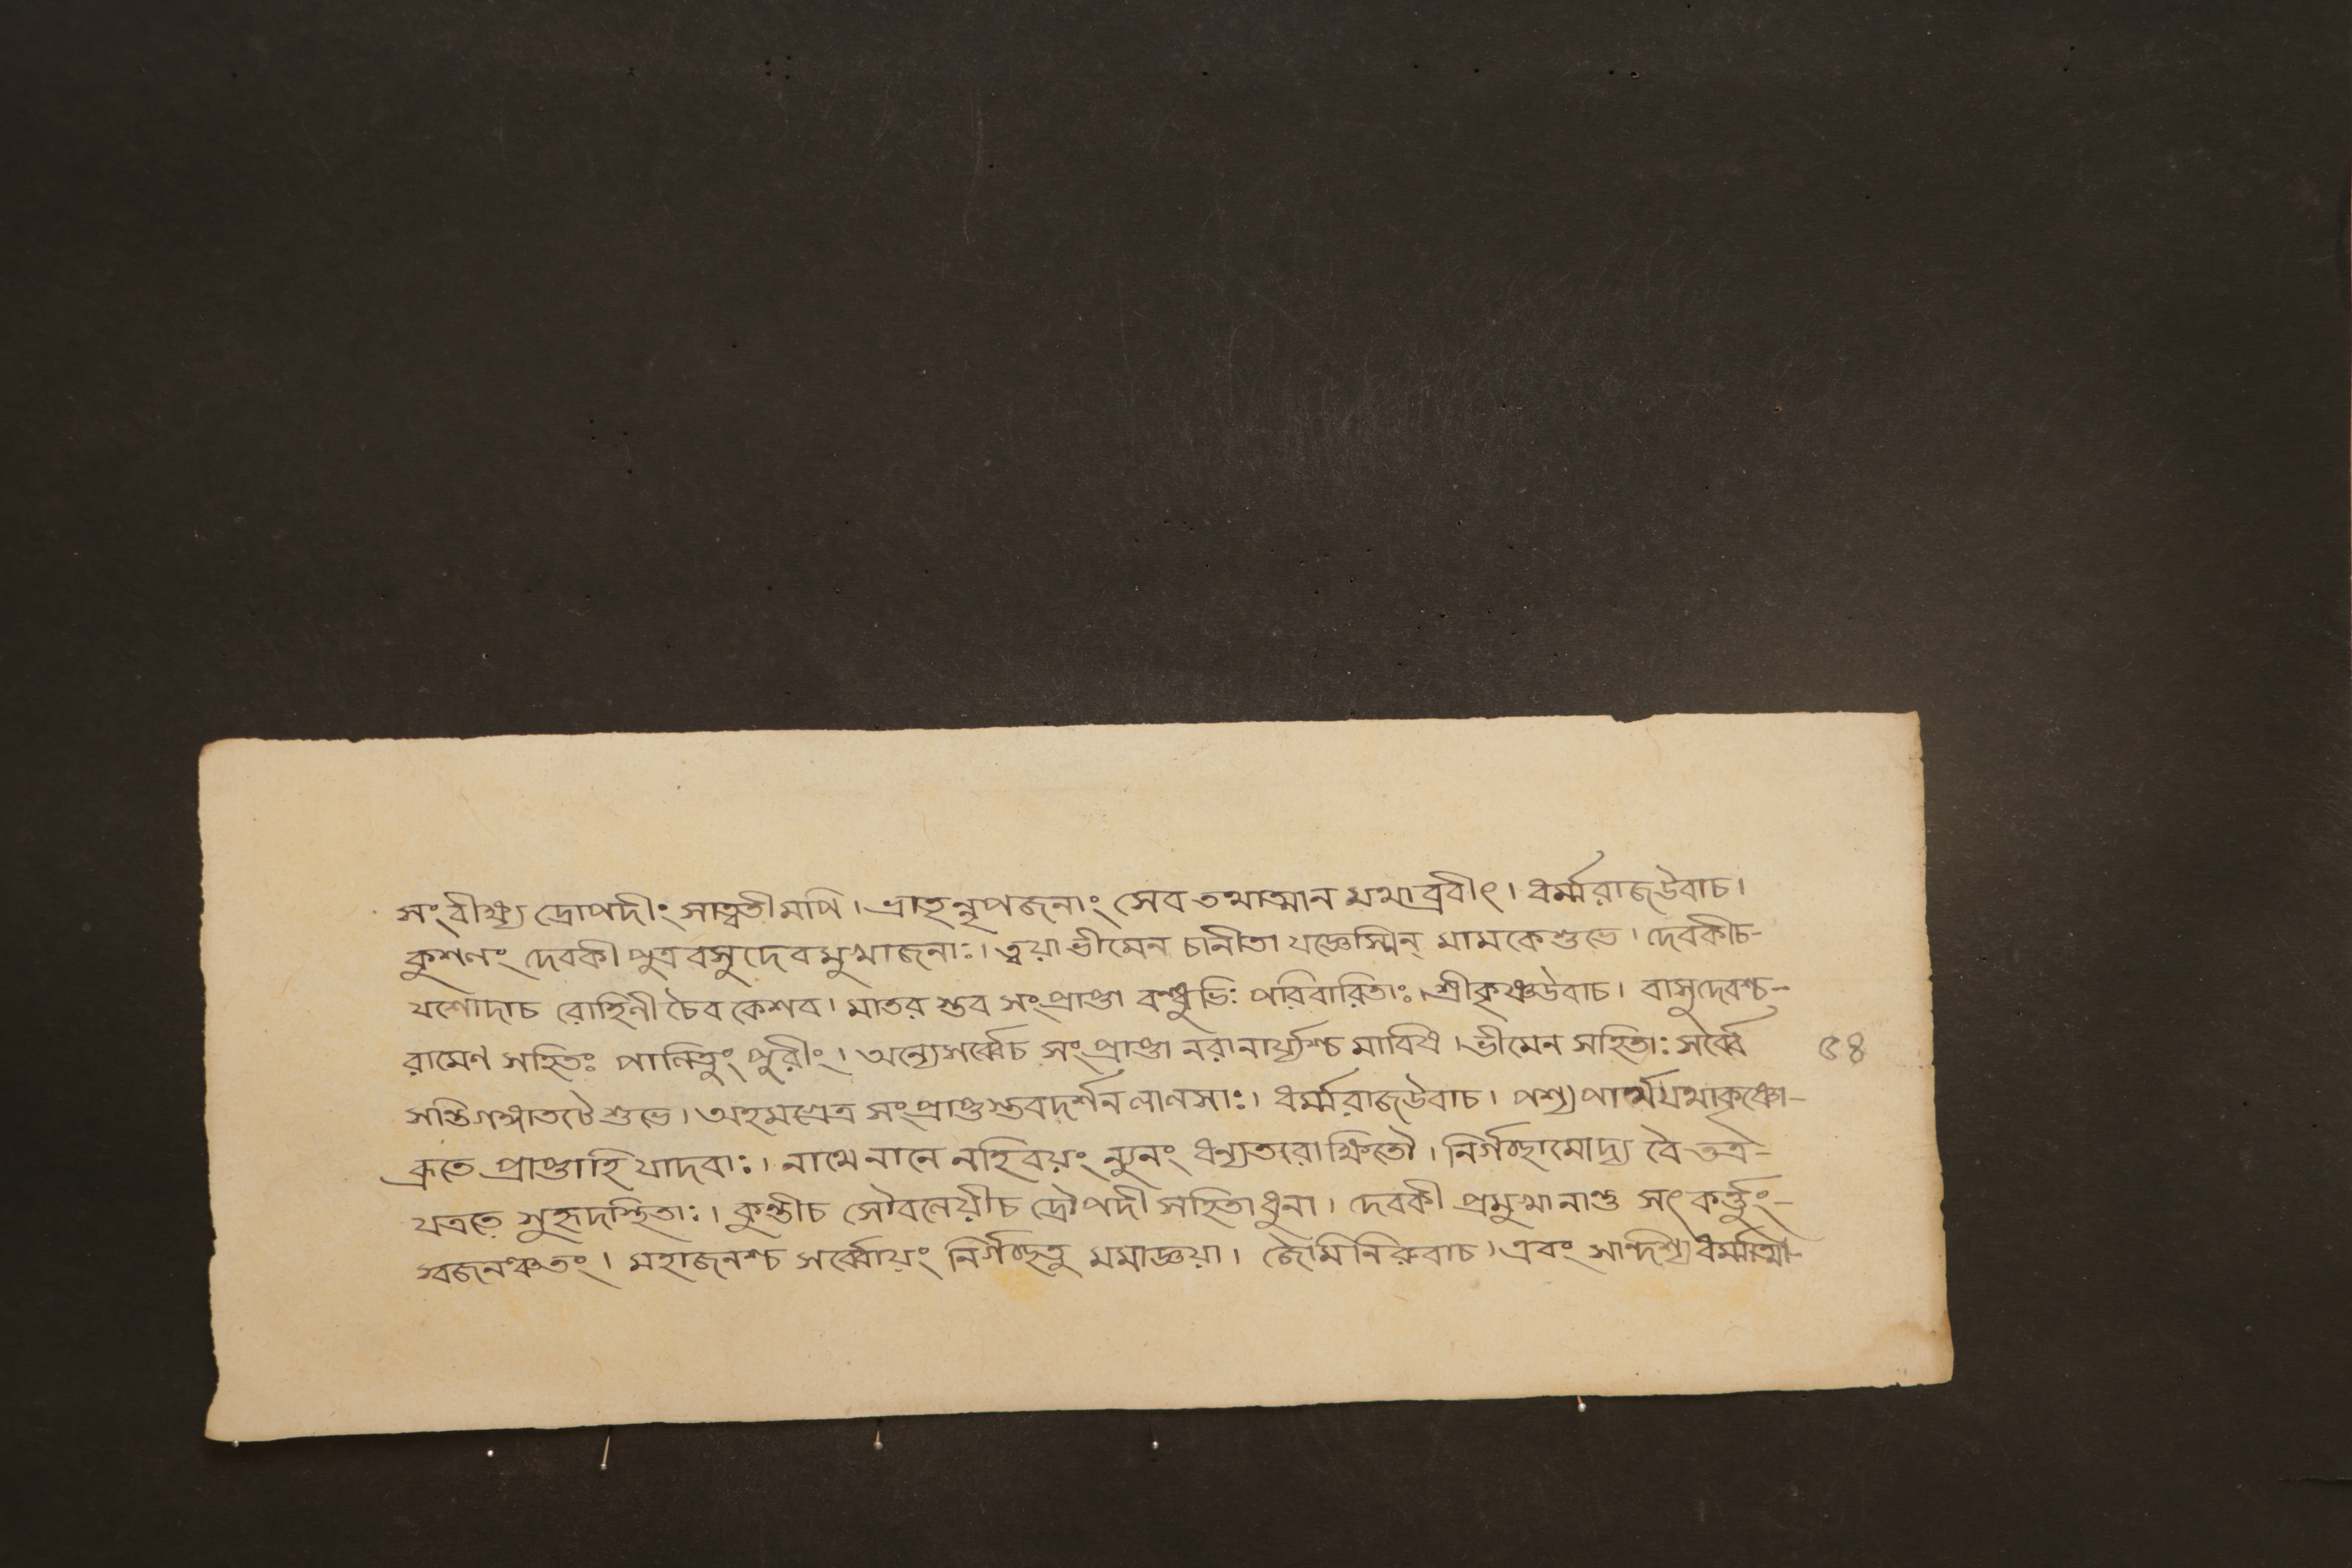 সংবীক্ষ্য দ্রোপদীং সাত্বতীমপি। ভ্রাতৃন্নৃপজনাং সেব তথাত্মান মথাব্রবীৎ। ধর্ম্মরাজউবাচ।
কুশলং দেবকীপুত্র বসুদেবমুখাজনাঃ। ত্বয়া ভীমেন চানীতা যজ্ঞেস্মিন্ মামকেশুভে। দেবকীচ-
যশোদাচ রোহিনী চৈব কেশব। মাতর স্তব সংপ্রাপ্তা বন্ধুভিঃ পরিবারিতাঃ। শ্রীকৃষ্ণউবাচ। বাসুদেবশ্চ-
রামেণ সহিতঃ পালিতুং পুরীং। অন্যেসর্ব্বেচ সংপ্রাপ্তা নরানার্য্যশ্চ মারিষ। ভীমেন সহিতাঃ সর্ব্বে
৫৪
সন্তিগঙ্গাতটেশুভে। অহমগ্রেত্র সংপ্রাপ্তস্তবদর্শনলালসাঃ। ধর্ম্মরাজউবাচ। পশ্যপার্থযথাকৃষ্ণো-
ব্রূতে প্রাপ্তাহি যাদবাঃ। নাথে নানে নহিবয়ং ন্যুনং ধন্যতরোক্ষিতৌ। নির্গচ্ছামোদ্য বৈ তত্র-
যত্রতে সুহৃদস্থিতাঃ। কুন্তীচ সৌবলেয়ীচ দ্রৌপদী সহিতাধুনা। দেবকী প্রমুখানান্তু সৎকর্ত্তুং-
স্বজনঞ্চতং। মহাজনশ্চ সর্ব্বোয়ং নির্গচ্ছতু মমাজ্ঞয়া। জৈমিনিরুবাচ। এবং সান্দিশ্য ধর্ম্মাত্মা-